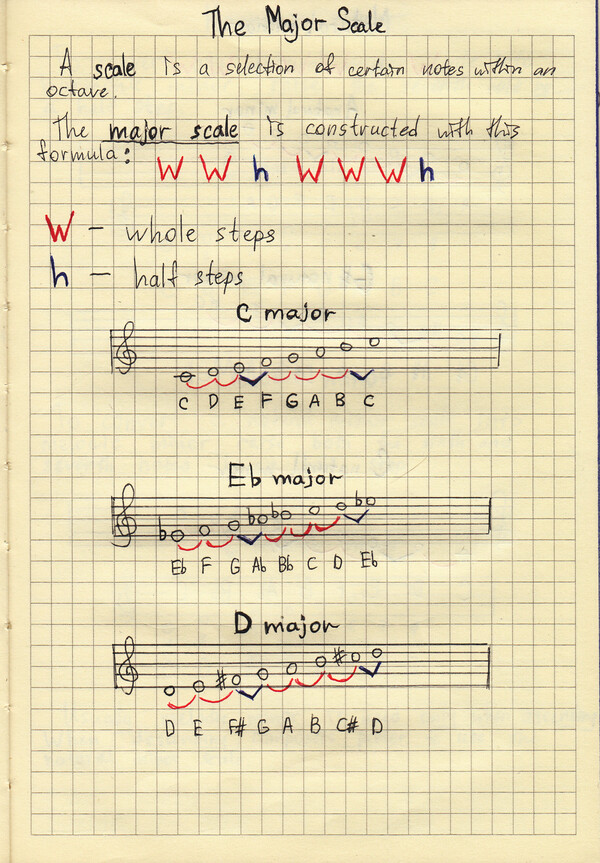 The Major Scale
A scale is a selection of certain notes within an
octave.
The major scale is constructed with this
formula: W W h W W W h
W – whole steps
h – half steps
C major
C D E F G A B C
Eb major
b b b b
Eb F G Ab Bb C D Eb
D major
# #
D E F# G A B C# D